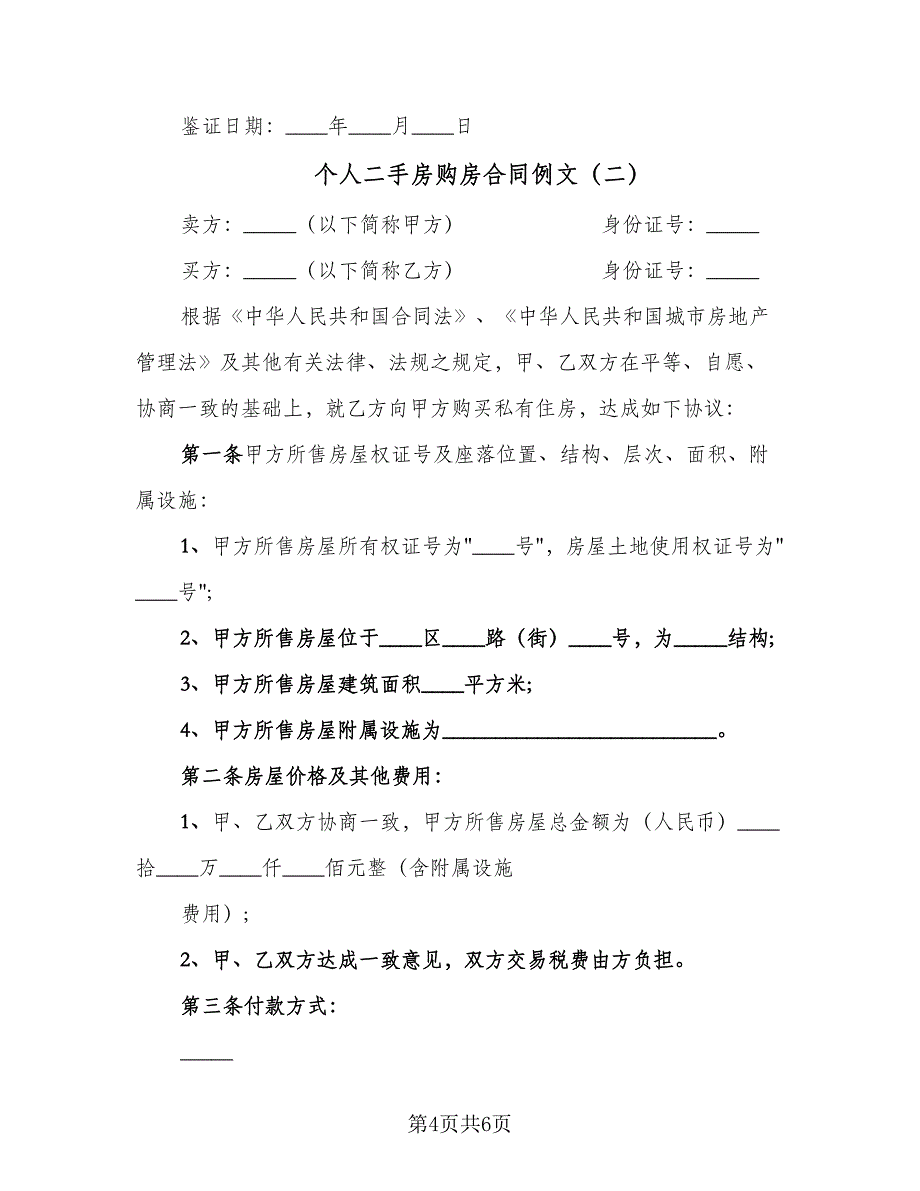 鉴证日期：____年____月____日
个人二手房购房合同例文（二）
卖方：_____（以下简称甲方） 身份证号：_____
买方：_____（以下简称乙方） 身份证号：_____
根据《中华人民共和国合同法》、《中华人民共和国城市房地产
管理法》及其他有关法律、法规之规定，甲、乙双方在平等、自愿、
协商一致的基础上，就乙方向甲方购买私有住房，达成如下协议：
第一条甲方所售房屋权证号及座落位置、结构、层次、面积、附
属设施：
1、甲方所售房屋所有权证号为"____号"，房屋土地使用权证号为"
____号";
2、甲方所售房屋位于____区____路（街）____号，为_____结构;
3、甲方所售房屋建筑面积____平方米;
4、甲方所售房屋附属设施为__________________________。
第二条房屋价格及其他费用：
1、甲、乙双方协商一致，甲方所售房屋总金额为（人民币）____
拾____万____仟____佰元整（含附属设施
费用）;
2、甲、乙双方达成一致意见，双方交易税费由方负担。
第三条付款方式：
_____
第4页共6页